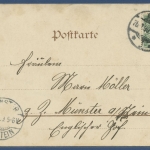 Postkarte
Fräulein
Maria Möller
z. Z. Münster a/Stein
Englischer Hof